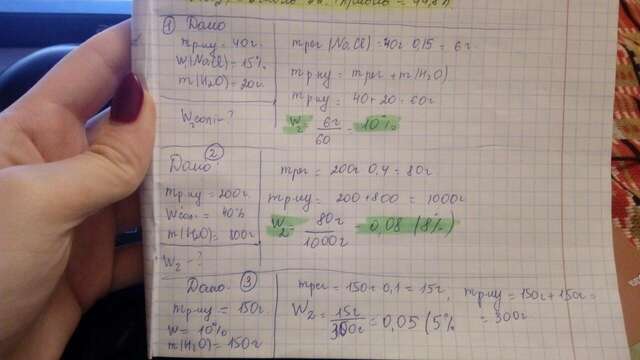 ① Дано
mр-му = 40г.
W(NaCl) = 15%
m(H2O) = 20г.
W2 солі - ?
mр.к (NaCl) = 40г 0,15 = 6г.
mр-ну = mр.г + m(H2O)
mр-му = 40 + 20 = 60г
W2 = 6г/60 = 10%
②
Дано:
mр-му = 200г
Wсолі = 40%
m(H2O) = 800г
W2 - ?
mр.г = 200г 0,4 = 80г.
mр-му = 200 + 800 = 1000г
W2 = 80г/1000г = 0,08 (8%)
Дано: ③
mр-му = 150г.
W = 10%
m(H2O) = 150г
mр.г = 150г 0,1 = 15г, mр-му = 150г + 150г =
= 300г
W2 = 15г/300г = 0,05 (5%